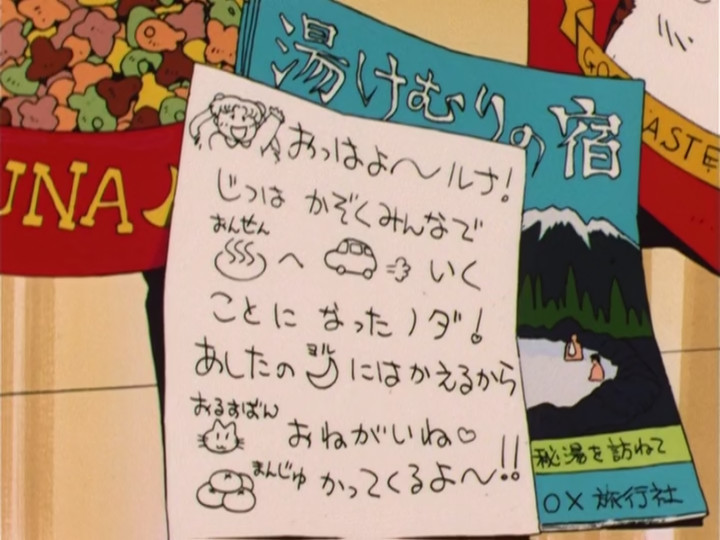 湯けむりの宿
おっはよ〜ルナ!
じつは かぞくみんなで
おんせん
へ いく
ことに なったノダ!
あしたの ヨル にはかえるから
おるすばん
おねがいね♡
まんじゅ かってくるよ〜!!
秘湯を訪ねて
○×旅行社
UNA
ASTE